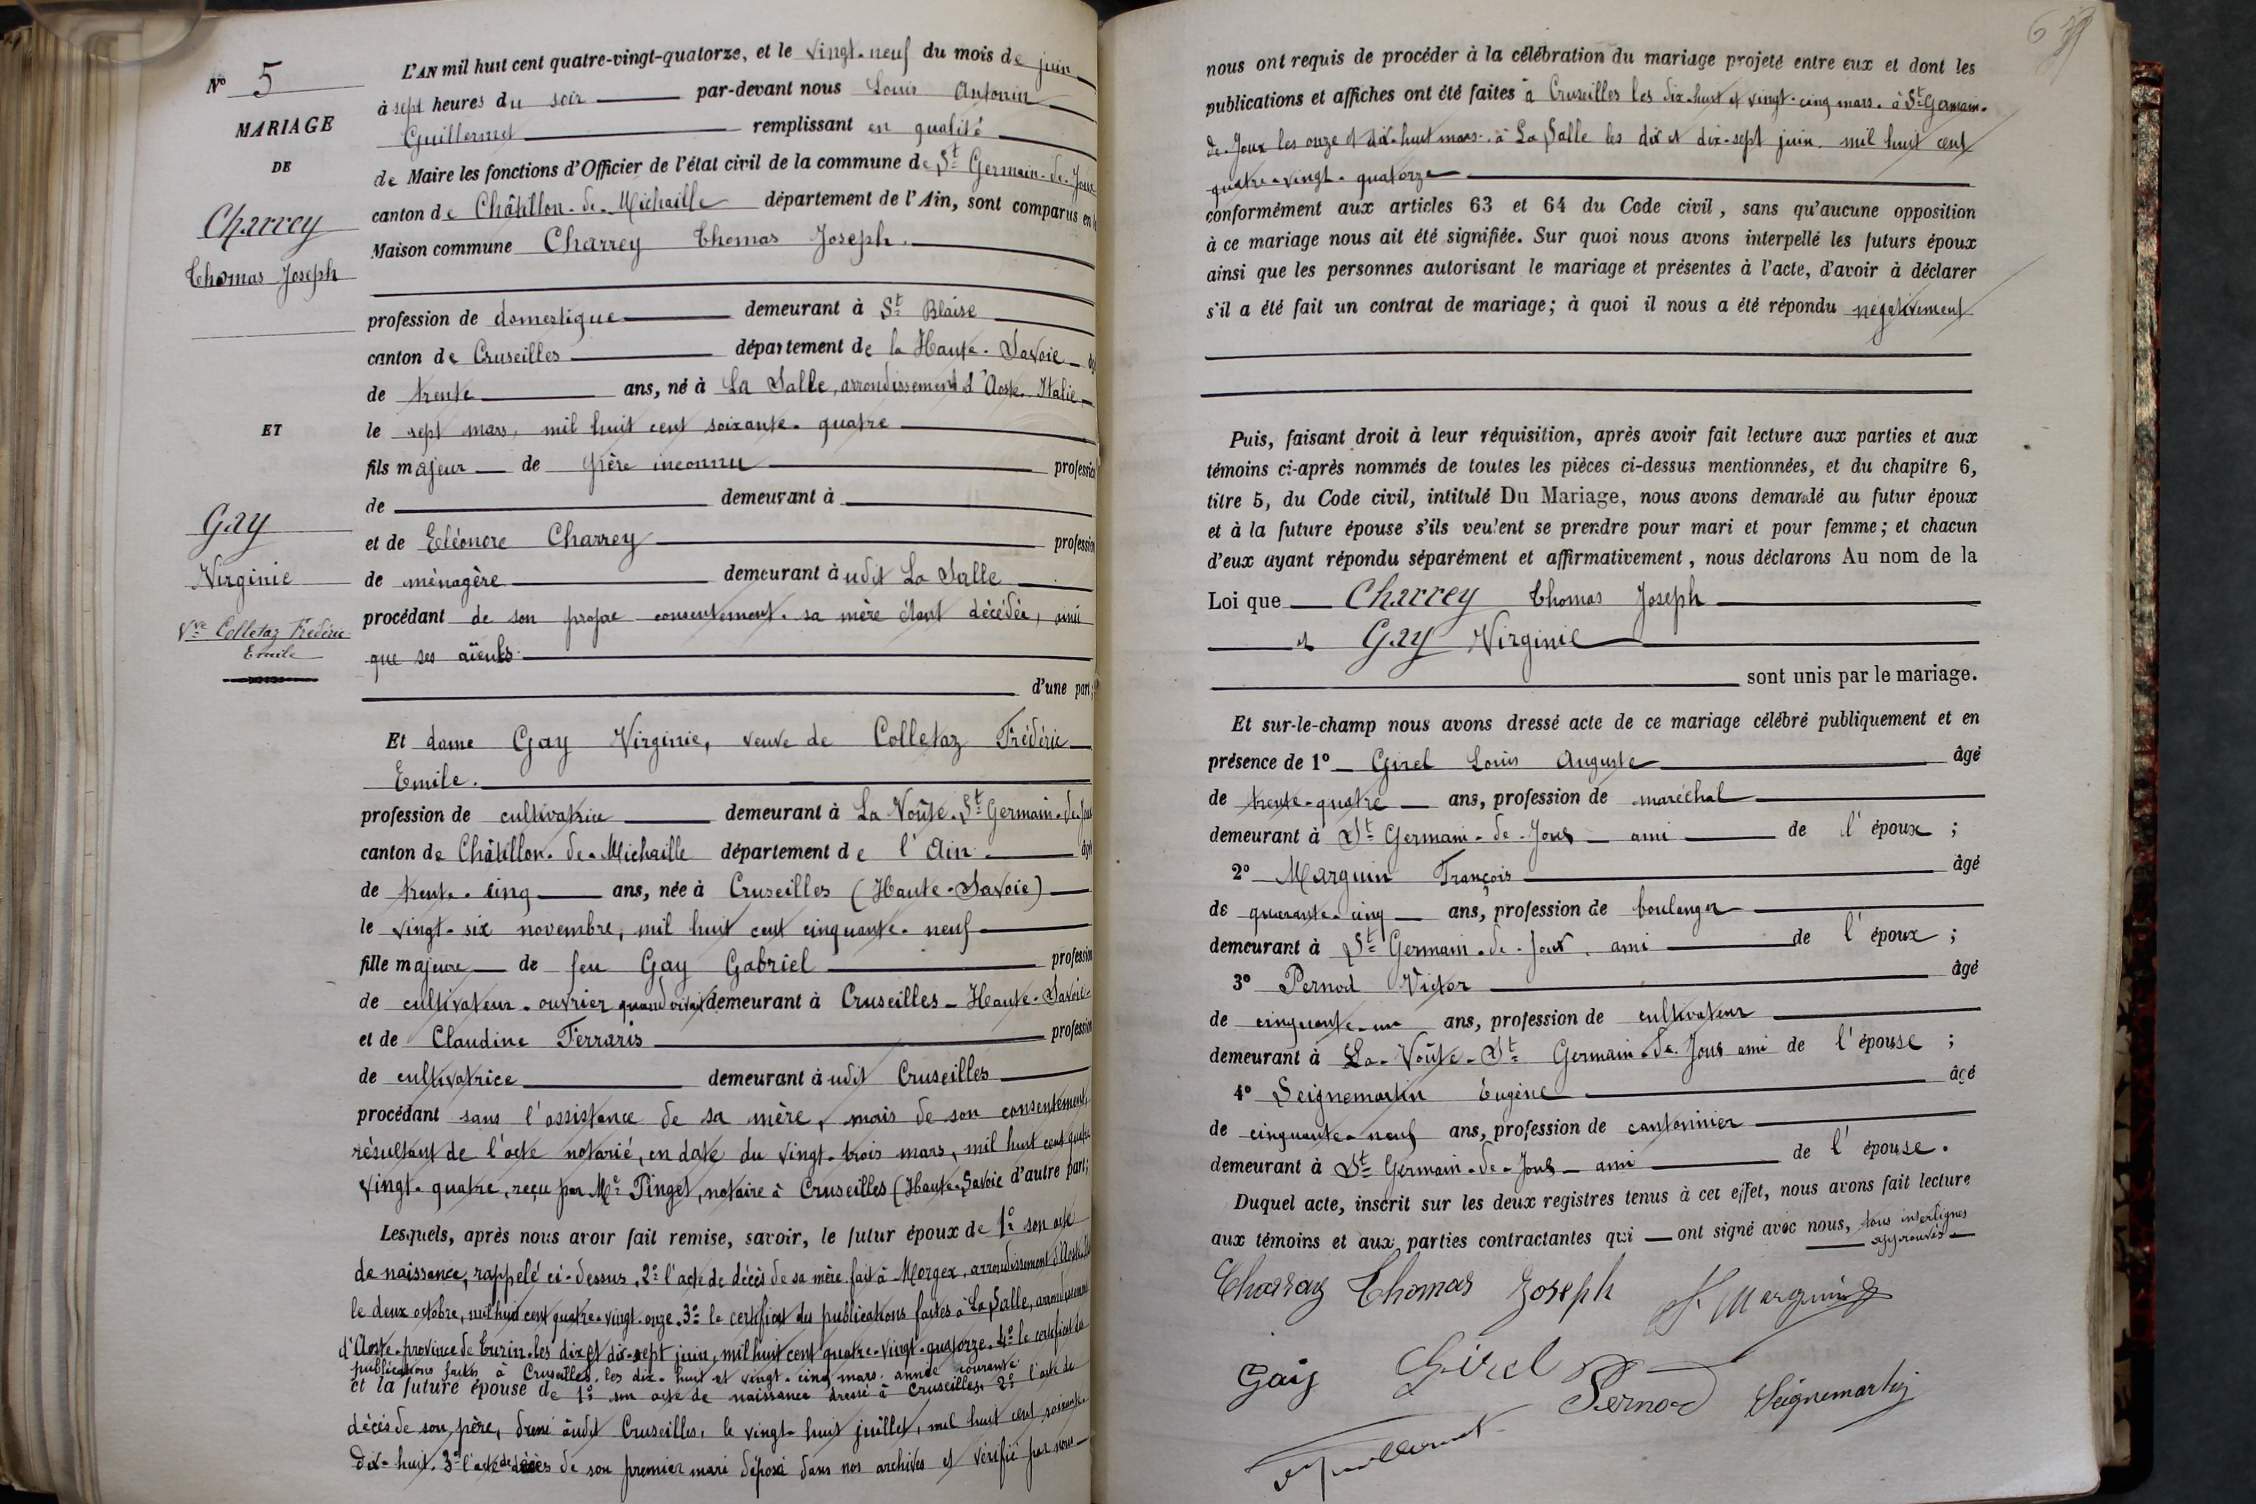 N° 5
MARIAGE
DE
Charrey
Thomas Joseph
ET
Gay
Virginie
Vve Colletaz Frédéric
Emile
L'AN mil huit cent quatre-vingt-quatorze, et le vingt-neuf du mois de juin
à sept heures du soir par-devant nous Louis Antonin
Guillermet remplissant en qualité
de Maire les fonctions d'Officier de l'état civil de la commune de St Germain-de-Joux
canton de Châtillon-de-Michaille département de l'Ain, sont comparus en la
Maison commune Charrey Thomas Joseph.
profession de domestique demeurant à St Blaise
canton de Cruseilles département de la Haute-Savoie
de trente ans, né à La Salle, arrondissement d'Aoste. Italie
le sept mars, mil huit cent soixante-quatre
fils majeur de père inconnu profession
de demeurant à
et de Eléonore Charrey profession
de ménagère demeurant àudit La Salle
procédant de son propre consentement. sa mère étant décédée, ainsi
que ses aïeuls.
d'une part;
Et dame Gay Virginie, veuve de Colletaz Frédéric
Emile.
profession de cultivatrice demeurant à La Voûte-St Germain-de-Joux
canton de Châtillon-de-Michaille département de l'Ain âgée
de trente-cinq ans, née à Cruseilles (Haute-Savoie)
le vingt-six novembre, mil huit cent cinquante-neuf
fille majeure de feu Gay Gabriel profession
de cultivateur-ouvrier quand vivait demeurant à Cruseilles-Haute-Savoie-
et de Claudine Ferraris profession
de cultivatrice demeurant àudit Cruseilles
procédant sans l'assistance de sa mère, mais de son consentement,
résultant de l'acte notarié, en date du vingt-trois mars, mil huit cent quatre
vingt-quatre, reçu par Me Pinget, notaire à Cruseilles (Haute-Savoie d'autre part;
Lesquels, après nous avoir fait remise, savoir, le futur époux de 1° son acte
de naissance, rappelé ci-dessus, 2° l'acte de décès de sa mère fait à Morgex, arrondissement d'Aoste
le deux octobre, mil huit cent quatre-vingt-onze. 3° le certificat des publications faites à La Salle, arrondissement
d'Aoste-province de Turin-les dix et dix-sept juin, mil huit cent quatre-vingt-quatorze. 4° le certificat de
publications faites à Cruseilles, les dix-huit et vingt-cinq mars, année courante.
et la future épouse de 1° son acte de naissance dressé à Cruseilles. 2° l'acte de
décès de son père, dressé àudit Cruseilles, le vingt-huit juillet, mil huit cent soixante-
dix-huit. 3° l'acte de décès de son premier mari déposé dans nos archives et vérifié par nous
nous ont requis de procéder à la célébration du mariage projeté entre eux et dont les
publications et affiches ont été faites à Cruseilles les dix-huit et vingt-cinq mars. à St Germain-
de-Joux les onze et dix-huit mars. à La Salle les dix et dix-sept juin. mil huit cent
quatre-vingt-quatorze
conformément aux articles 63 et 64 du Code civil, sans qu'aucune opposition
à ce mariage nous ait été signifiée. Sur quoi nous avons interpellé les futurs époux
ainsi que les personnes autorisant le mariage et présentes à l'acte, d'avoir à déclarer
s'il a été fait un contrat de mariage; à quoi il nous a été répondu négativement
Puis, faisant droit à leur réquisition, après avoir fait lecture aux parties et aux
témoins ci-après nommés de toutes les pièces ci-dessus mentionnées, et du chapitre 6,
titre 5, du Code civil, intitulé Du Mariage, nous avons demandé au futur époux
et à la future épouse s'ils veulent se prendre pour mari et pour femme; et chacun
d'eux ayant répondu séparément et affirmativement, nous déclarons Au nom de la
Loi que Charrey Thomas Joseph
et Gay Virginie
sont unis par le mariage.
Et sur-le-champ nous avons dressé acte de ce mariage célébré publiquement et en
présence de 1° Girel Louis Auguste âgé
de trente-quatre ans, profession de maréchal
demeurant à St Germain-de-Joux ami de l'époux;
2° Marguin François âgé
de quarante-cinq ans, profession de boulanger
demeurant à St Germain-de-Joux. ami de l'époux;
3° Pernod Victor âgé
de cinquante-un ans, profession de cultivateur
demeurant à La-Voûte-St Germain-de-Joux ami de l'épouse;
4° Seignemartin Eugène âgé
de cinquante-neuf ans, profession de cantonnier
demeurant à St Germain-de-Joux-ami de l'épouse.
Duquel acte, inscrit sur les deux registres tenus à cet effet, nous avons fait lecture
aux témoins et aux parties contractantes qui ont signé avec nous, tous interlignes
approuvés
Charray Thomas Joseph F. Marguin
Gay Girel Pernod Seignemartin
Guillermet